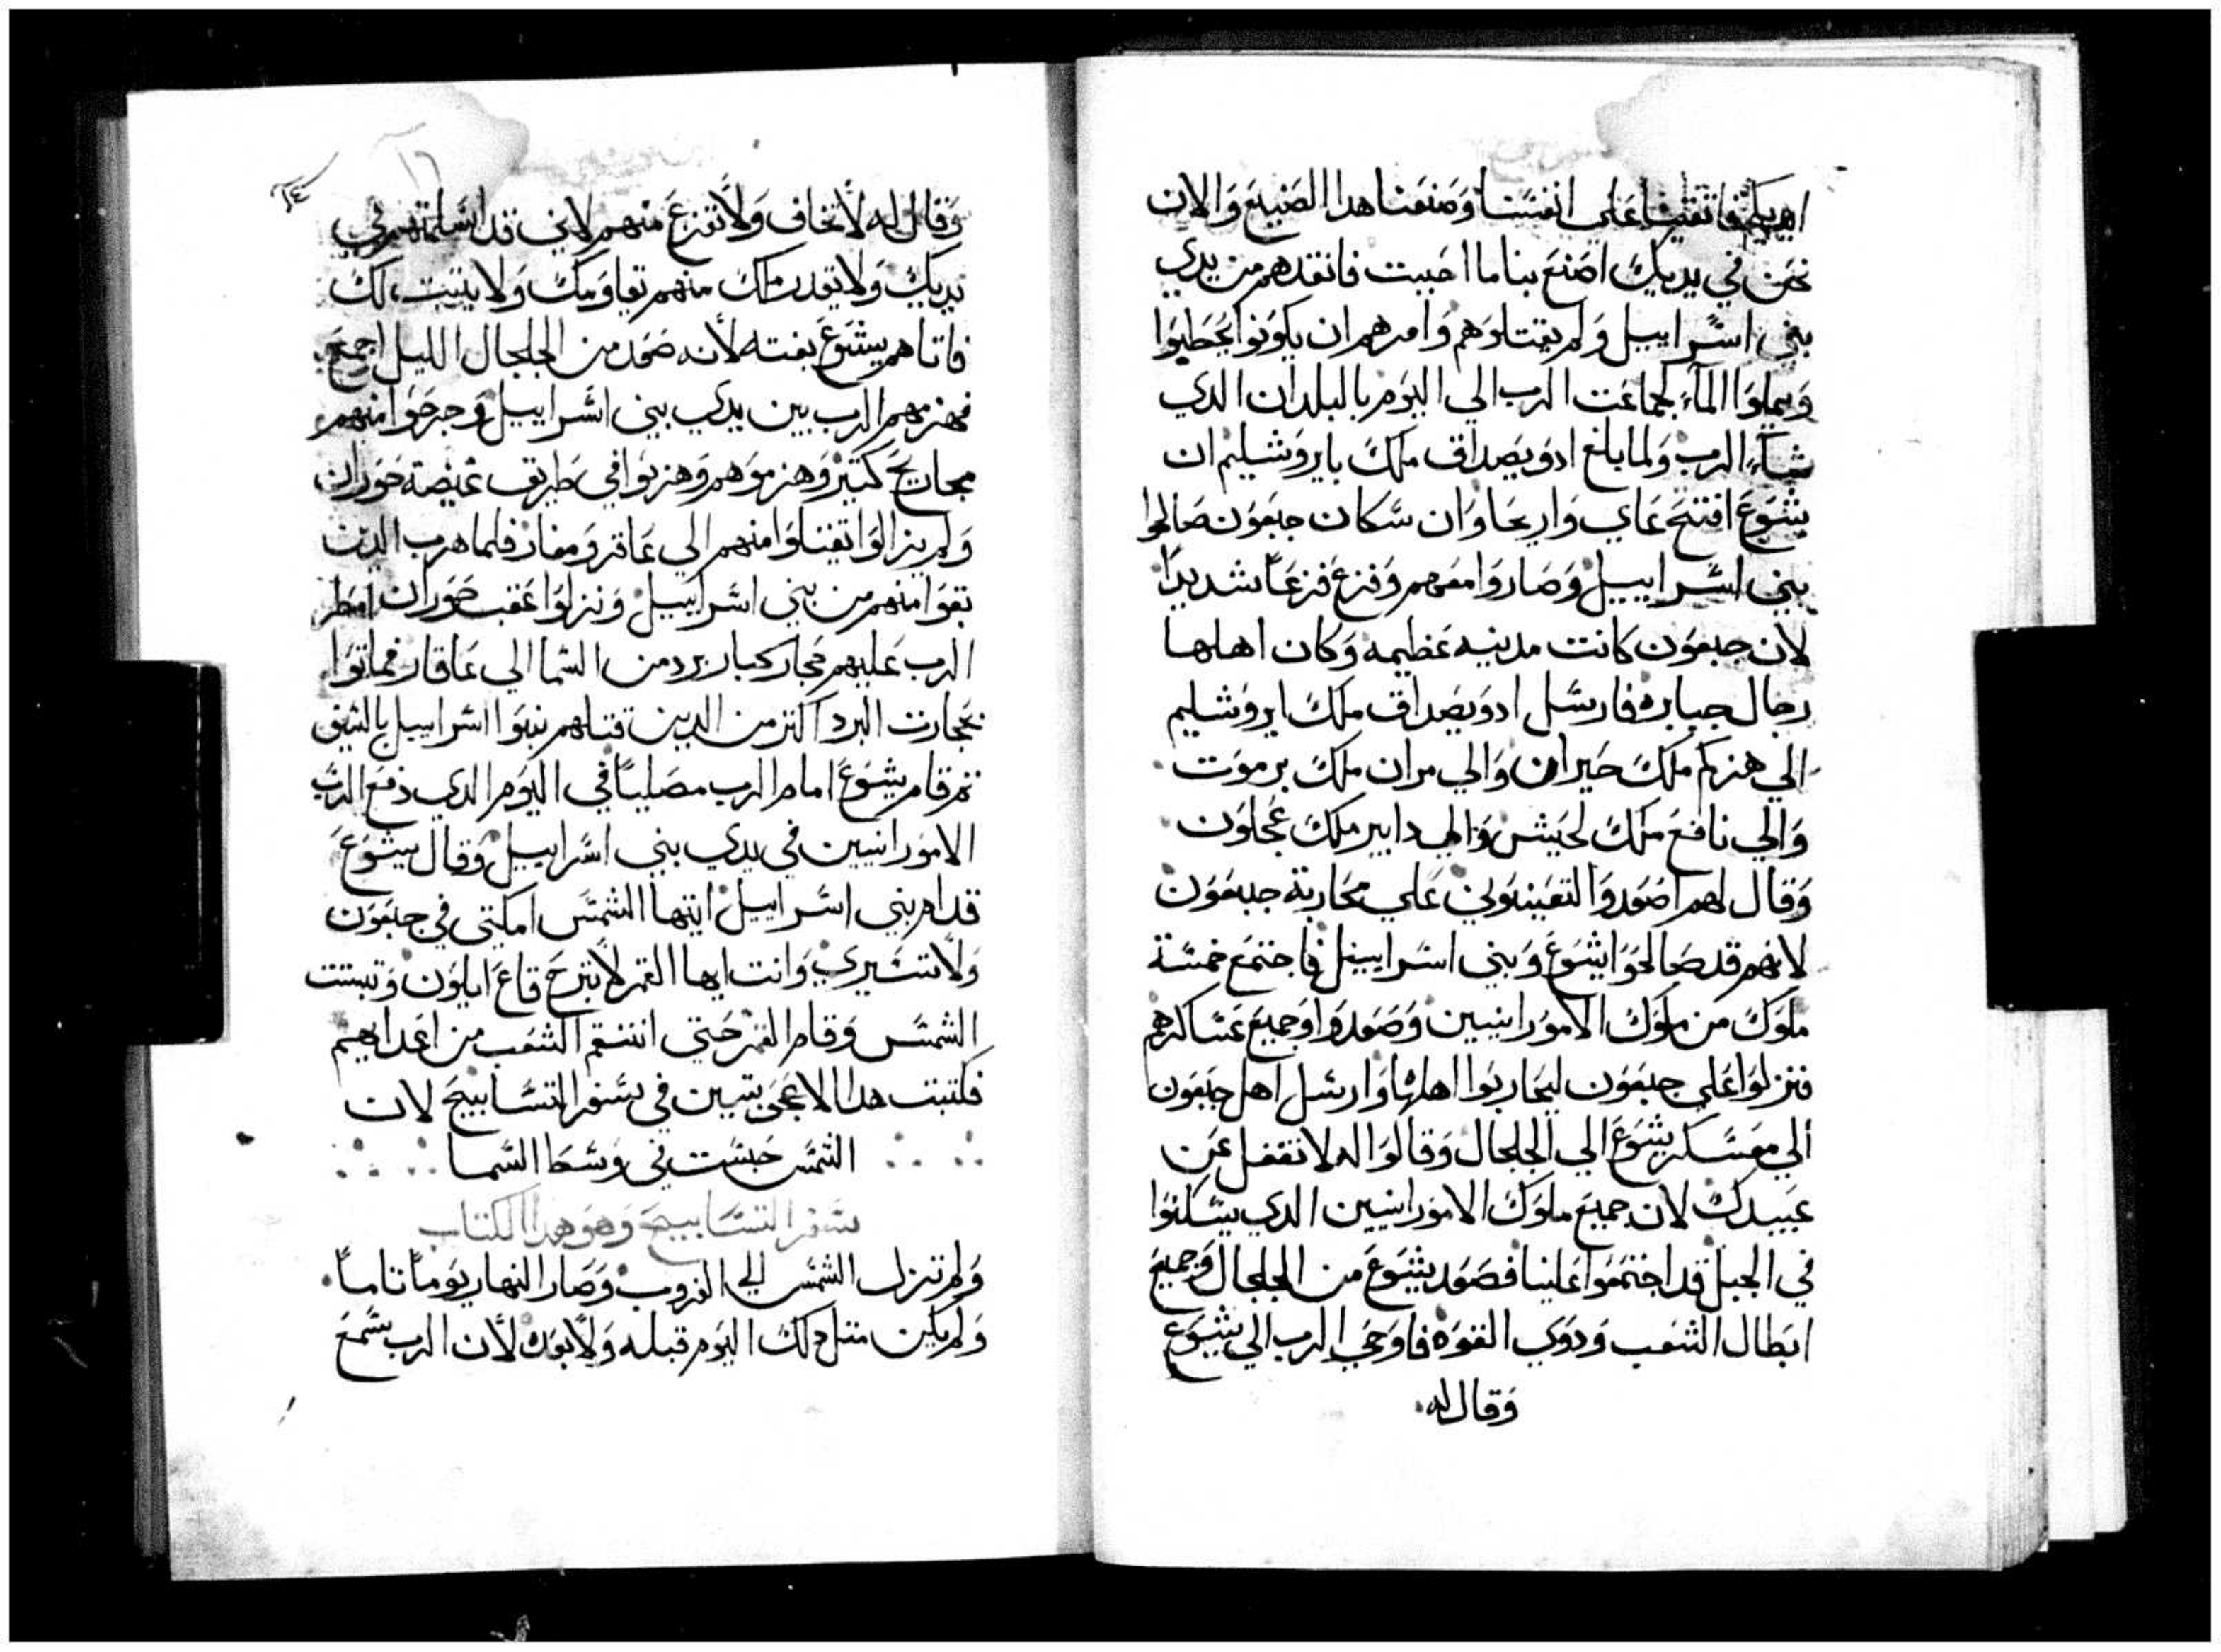 ايديكم فاتقينا على انفسنا وصنعنا هدا الصنيع والان
نحن في يديك اصنع بنا ما احببت فانقدهم من يدي
بني اسراييل ولم يقتلوهم وامرهم ان يكونوا يحطبوا
ويملوا الماء لجماعت الرب الي اليوم بالبلدان الدي
شاء الرب ولما بلغ ادونيصداق ملك بايروشليم ان
يشوع افتتح عاي واريحا وان سكان جبعون صالحوا
بني اسراييل وصاروا معهم وفزع فزعاً شديداً
لان جبعون كانت مدينيه عظيمه وكان اهلها
رجال جبابره فارسل ادونيصداق ملك ايروشليم
الي هزكم ملك حيران والي مران ملك برموت
والي نافع ملك لحيش والي دابير ملك عجلون
وقال لهم اصعدوا لتعينوني علي محاربة جبعون
لانهم قد صالحوا يشوع وبني اسراييل فاجتمع خمسة
ملوك من ملوك الامورانيين وصعدوا وجميع عساكرهم
فنزلوا علي جبعون ليحاربوا اهلها وارسل اهل جبعون
الي معسكر يشوع الي الجلجال وقالوا له لا تغفل عن
عبيدك لان جميع ملوك الامورانيين الدي يسكنوا
في الجبل قد اجتمعوا علينا فصعد يشوع من الجلجال وجميع
ابطال الشعب ودوي القوه فاوحي الرب الي يشوع
وقال له
١٦
وقال له لا تخاف ولا تفزع منهم لاني قد اسلمتهم في
يديك ولا يقدر منهم يقاومك ولا يثبت لك
فاتاهم يشوع بغته لانه صعد من الجلجال الليل اجمع
فهزمهم الرب بين يدي بني اسراييل وجرحوا منهم
مجاريح كتير وهزموهم وهربوا في طريق غيضة حوران
ولم يزالوا تقتلوا منهم الي عاقر ومغار فلما هرب الدين
بقوا منهم من بني اسراييل ونزلوا عقب حوران امطر
الرب عليهم حجار كبار برد من السما الي عاقار فماتوا
بحجارت البرد اكتر من الدين قتلهم بنوا اسراييل بالسيف
تم قام يشوع امام الرب مصلياً في اليوم الدي دفع الرب
الامورانيين في يدي بني اسراييل وقال يشوع
قدام بني اسراييل ايتها الشمس امكتي في جبعون
ولا تسيري وانت ايها القمر لا تبرح قاع ايلون وتبتت
الشمس وقام القمر حتي انتقم الشعب من اعدايهم
فكتبت هدا الاعجوبتين في سفر التسابيح لان
الشمس حبست في وسط السما
سفر التسابيح وهو هدا الكتاب
ولم تنزل الشمس الي الغروب وصار النهار يوماً تاماً
ولم يكن متل دلك اليوم قبله ولا بعده لان الرب سمع